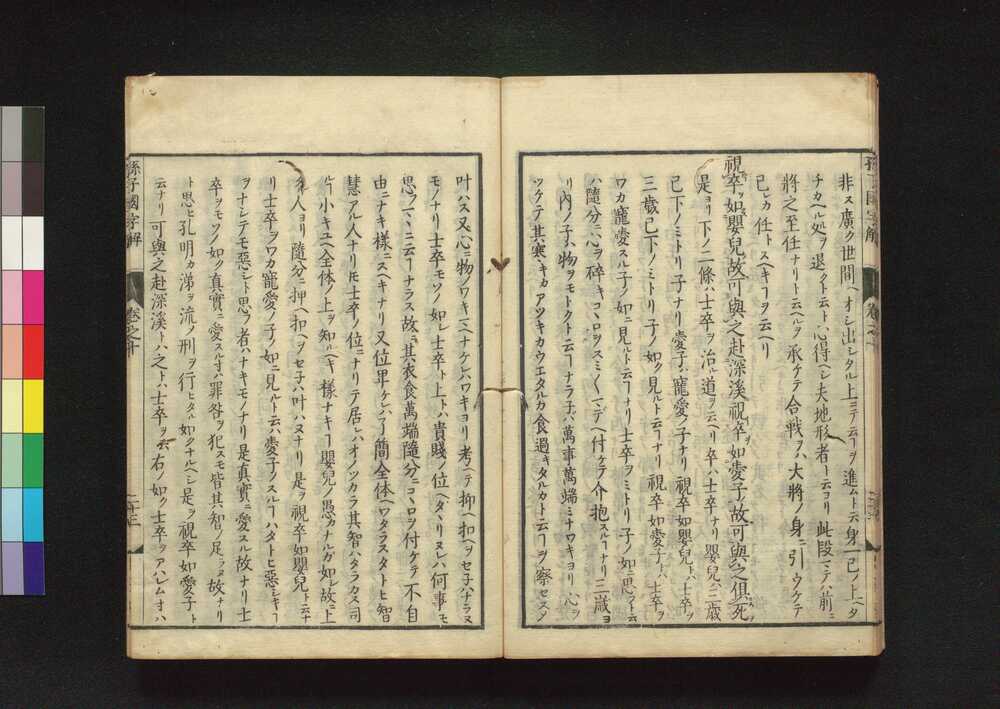 非ス廣ク世間ヘオシ出シタル上ニテ云ヿヲ進ムト云身一己ノ上ヘタ
チカヘル処ヲ退クト云ト心得ヘシ夫地形者ト云ヨリ此段マテ前ニ
將之至任ナリト云ヘルヲ承ケテ合戰ヲハ大將ノ身ニ引ウケテ
己レカ任トスヘキヿヲ云ヘリ
視卒如嬰兒故可與之赴深溪視卒如愛子故可與之俱死
是ヨリ下ノ二條ハ士卒ヲ治ル道ヲ云ヘリ卒ハ士卒ナリ嬰兒ハ三歳
已下ノミトリ子ナリ愛子ハ寵愛ノ子ナリ視卒如嬰兒トハ士卒ヲ
三歳已下ノミトリ子ノ如ク見ルト云ヿナリ視卒如愛子トハ士卒ヲ
ワカ寵愛スル子ノ如ニ見ルト云ヿナリ士卒ヲミトリ子ノ如ニ見ルト云
ハ隨分ニ心ヲ碎キコヽロヲスミ〳〵マテヘ付ケテ介抱スルヿナリ三歳ヨ
リ内ノ子ハ物ヲモトクト云ヿナラ子ハ萬事萬端ミナワキヨリ心ヲ
ツケテ其寒キカアツキカウエタルカ食過キタルカト云ヿヲ察セスン
叶ハス又心ニ物ノワキマヘナケレハワキヨリ考ヘテ抑ヘ扣ヘヲセ子ハナラヌ
モノナリ士卒モソノ如シ士卒ト上トハ貴賤ノ位ヘタヽリヌレハ何事モ
思フマヽニ云ヿナラス故ニ其衣食萬端隨分ニコヽロヲ付ケテ不自
由ニナキ樣ニスヘキナリ又位卑ケレハ了簡全体ヘワタラスタトヒ智
慧アル人ナリトモ士卒ノ位ニナリテ居レハオノツカラ其智ハタラカス司
ル所小キユヘ全体ノ上ヲ知ルヘキ樣ナキヿ嬰兒ノ愚カナルカ如シ故ニ上
タル人ヨリ隨分ニ押ヘ扣ヘヲセ子ハ叶ハヌナリ是ヲ視卒如嬰兒ト云ナ
リ士卒ヲワカ寵愛ノ子ノ如ニ見ルト云ハ愛子ノスルヿハタトヒ惡シキヿ
ヲナシテモ惡シト思フ者ハナキモノナリ是真實ニ愛スル故ナリ士
卒ヲモソノ如ク真實ニ愛スル時ハ罪咎ヲ犯スモ皆其智ノ足ラヌ故ナリ
ト思ヒ孔明カ涕ヲ流ノ刑ヲ行ヒタル如クナルヘシ是ヲ視卒如愛子ト
云ナリ可與之赴深溪トハ之トハ士卒ヲ云右ノ如ク士卒ヲアハレム時ハ
孫子國字解
卷之十